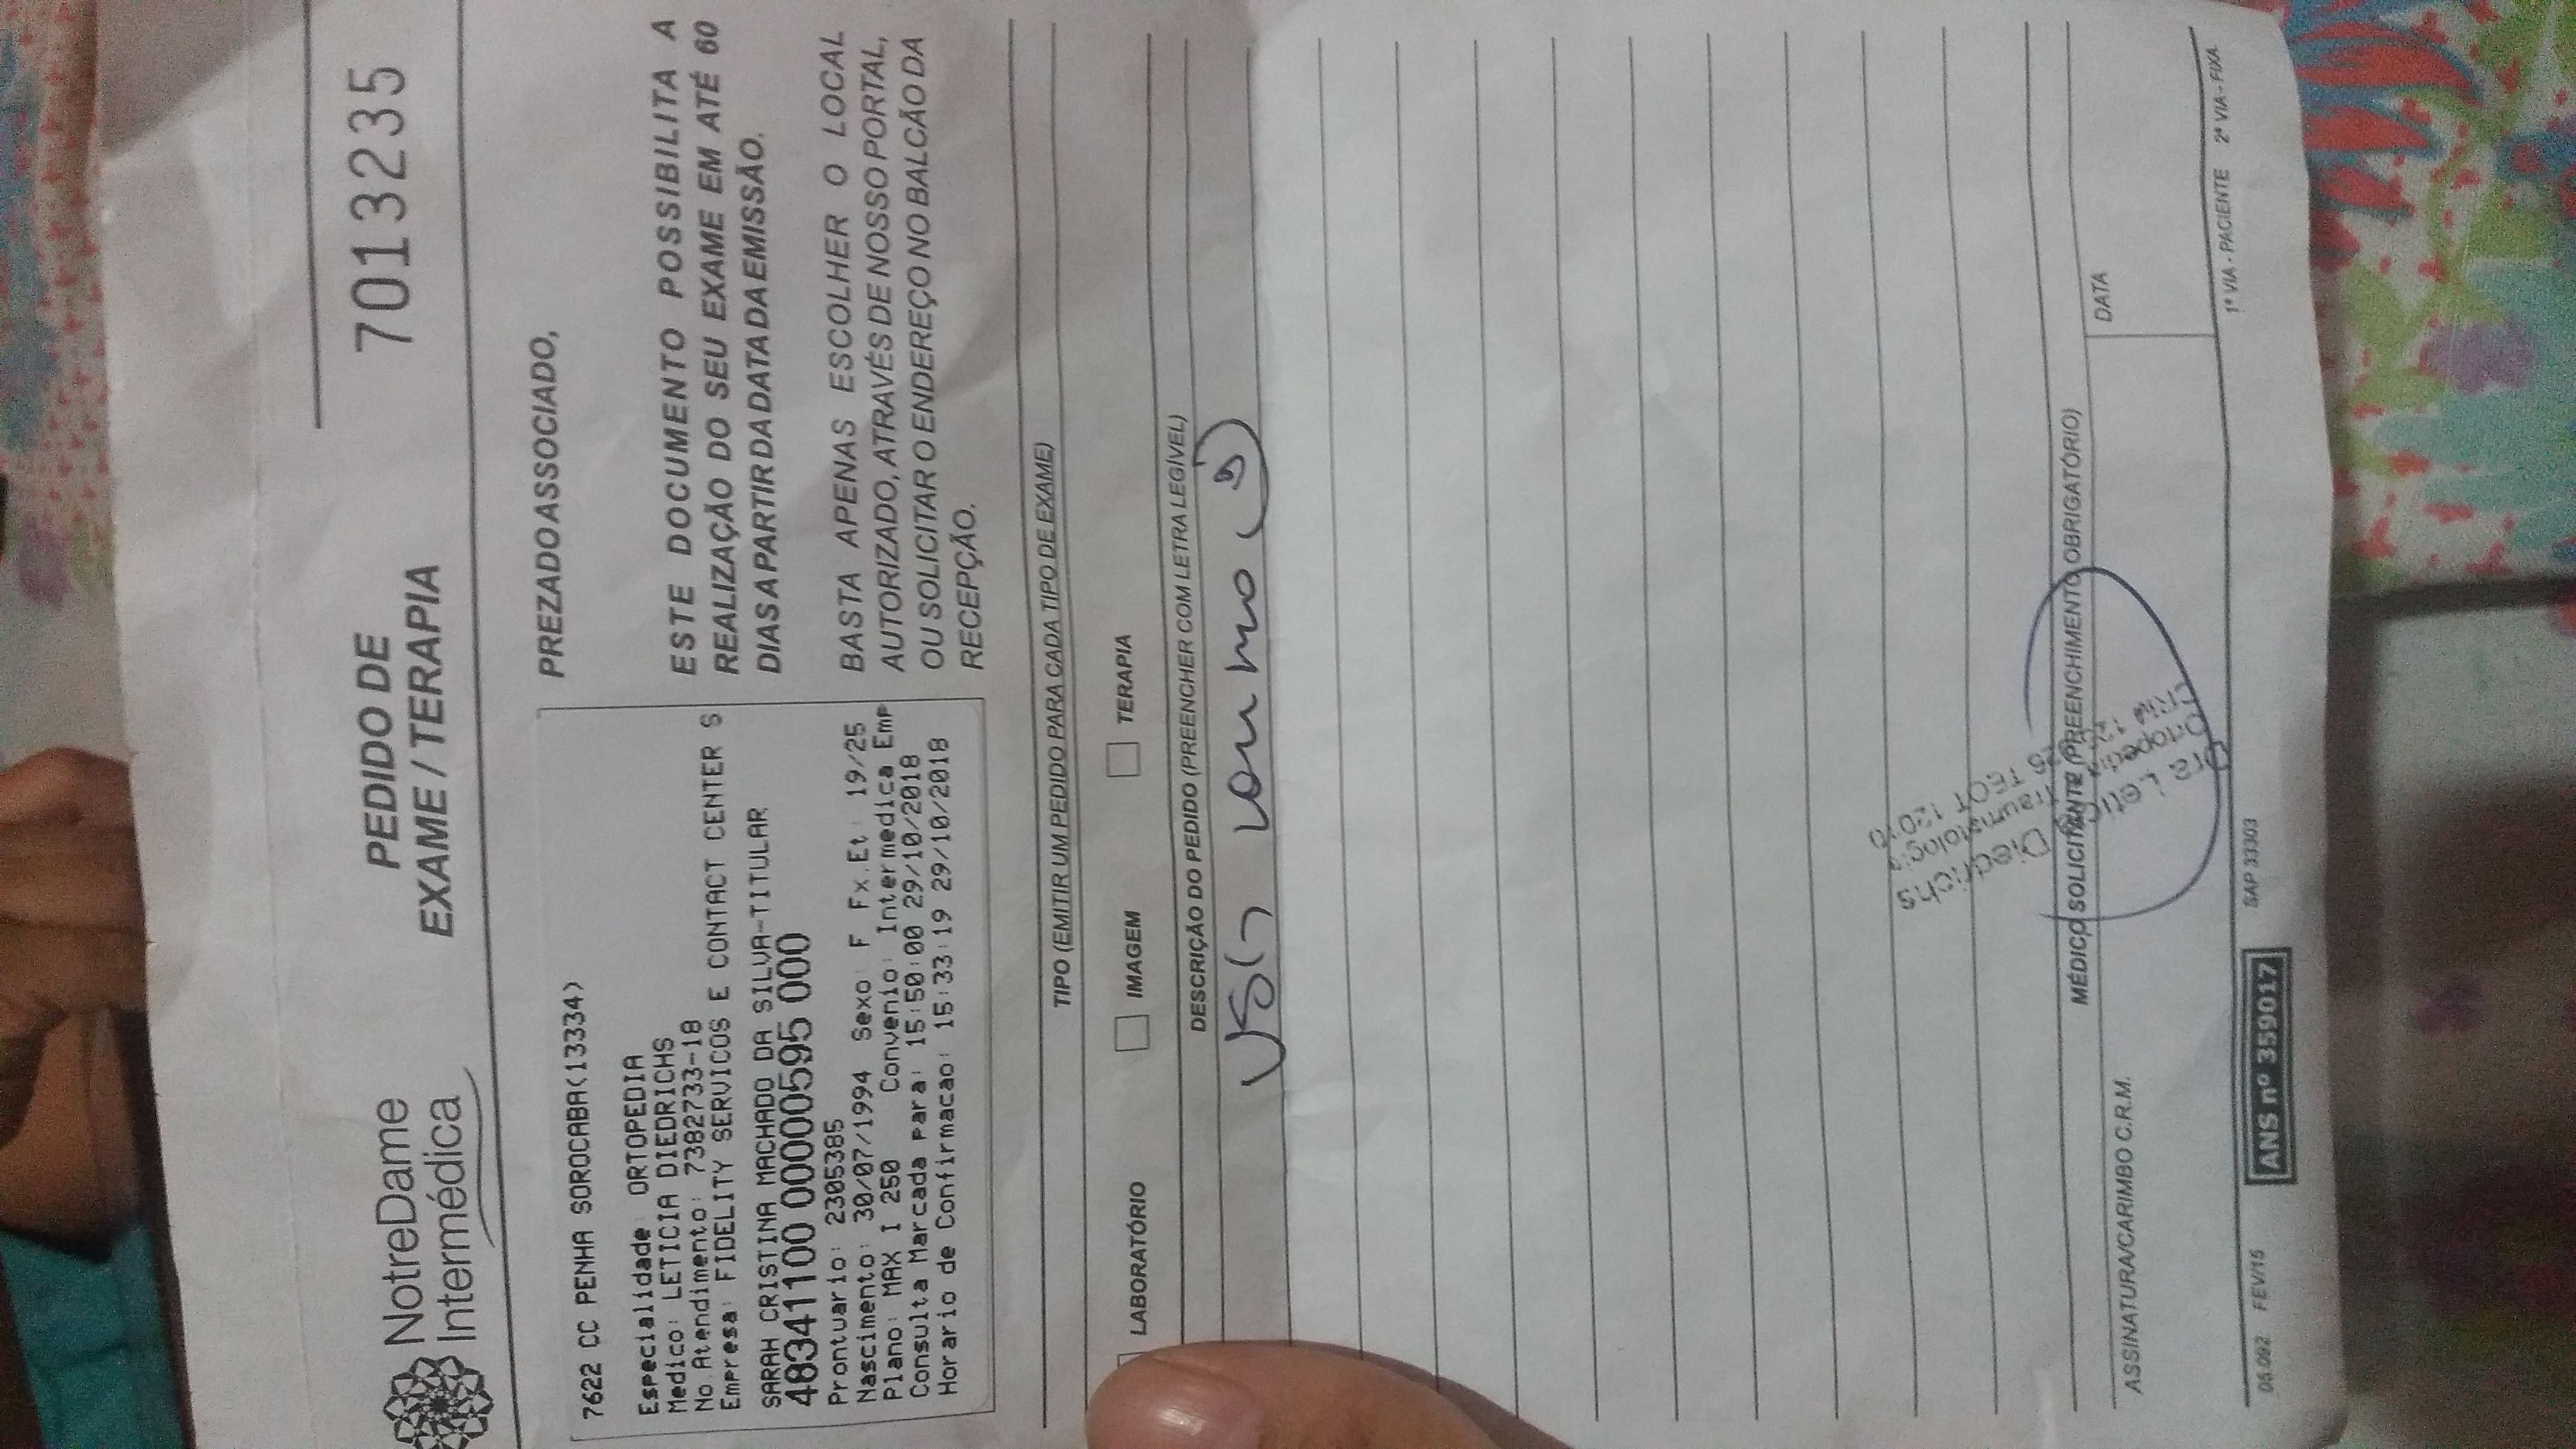 NotreDame
Intermédica
PEDIDO DE
EXAME / TERAPIA
7013235
7622 CC PENHA SOROCABA(13334)
Especialidade: ORTOPEDIA
Medico: LETICIA DIEDRICHS
No.Atendimento: 7382733-18
Empresa: FIDELITY SERVICOS E CONTACT CENTER S
SARAH CRISTINA MACHADO DA SILVA-TITULAR
48341100 00000595 000
Prontuario: 2305385
Nascimento: 30/07/1994 Sexo: F Fx.Et: 19/25
Plano: MAX I 250 Convenio: Intermedica Emp
Consulta Marcada para: 15:50:00 29/10/2018
Horario de Confirmacao: 15:33:19 29/10/2018
PREZADO ASSOCIADO,
ESTE DOCUMENTO POSSIBILITA A
REALIZAÇÃO DO SEU EXAME EM ATÉ 60
DIAS A PARTIR DA DATA DA EMISSÃO.
BASTA APENAS ESCOLHER O LOCAL
AUTORIZADO, ATRAVÉS DE NOSSO PORTAL,
OU SOLICITAR O ENDEREÇO NO BALCÃO DA
RECEPÇÃO.
TIPO (EMITIR UM PEDIDO PARA CADA TIPO DE EXAME)
LABORATÓRIO IMAGEM TERAPIA
DESCRIÇÃO DO PEDIDO (PREENCHER COM LETRA LEGÍVEL)
USG
MÉDICO SOLICITANTE (PREENCHIMENTO OBRIGATÓRIO)
ASSINATURA/CARIMBO C.R.M.
DATA
Dra Leticia Diedrichs
Ortopedia Traumatologia
CRM TEOT
1ª VIA - PACIENTE 2ª VIA - FIXA
06.092 FEV/15
ANS nº 359017
SAP 33303